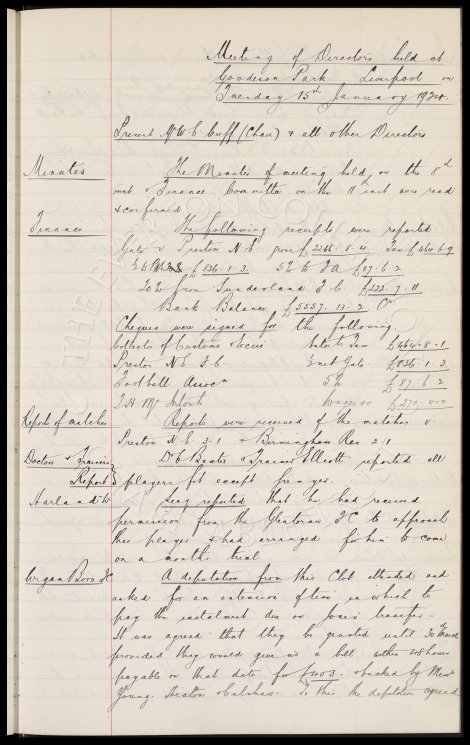 Meeting of Directors held at
Goodison Park Liverpool on
Tuesday 15th January 1924.
Present Mr W. C. Cuff (Chair) & all other Directors
Minutes The Minutes of meeting held on the 8th
inst & Finance Committee on the 11th inst were read
& confirmed
Finance The following receipts were reported
Gate v Preston N. E. gross £2266. 8. Tax £464. 8.
£836. 1. 3. 5% to F A £87. 6. 2
20% from Sunderland F. C. £222. 7. 11
Bank Balance £5557. 13. 2 Cr
Cheques were signed for the following
Collector of Customs & Excise Tax £464. 8. 1
Preston N. E. F. C. ½ net Gate £836 1. 3
Football Assocn 5% £87. 6. 2
Wages £270
Reports of matches Reports were received of the matches v
Preston N. E. 3-1 & Birmingham Res 2-1
Doctors & Trainers Dr Baxter & Trainer Elliott reported all
Report players fit except
Harland W Sec reported that he had received
permission from the Glentoran F C to approach
this player & had arranged for him to come
on a month's trial
Wigan Boro F C A deputation from this Club attended and
asked for an extension of time in which to
pay the instalment due on transfer.
It was agreed that they be granted until 30th
provided they would give us a bill within 48 hours
payable on that date for £403. & backed by Messrs
Young. Heaton & To this the deputation agreed